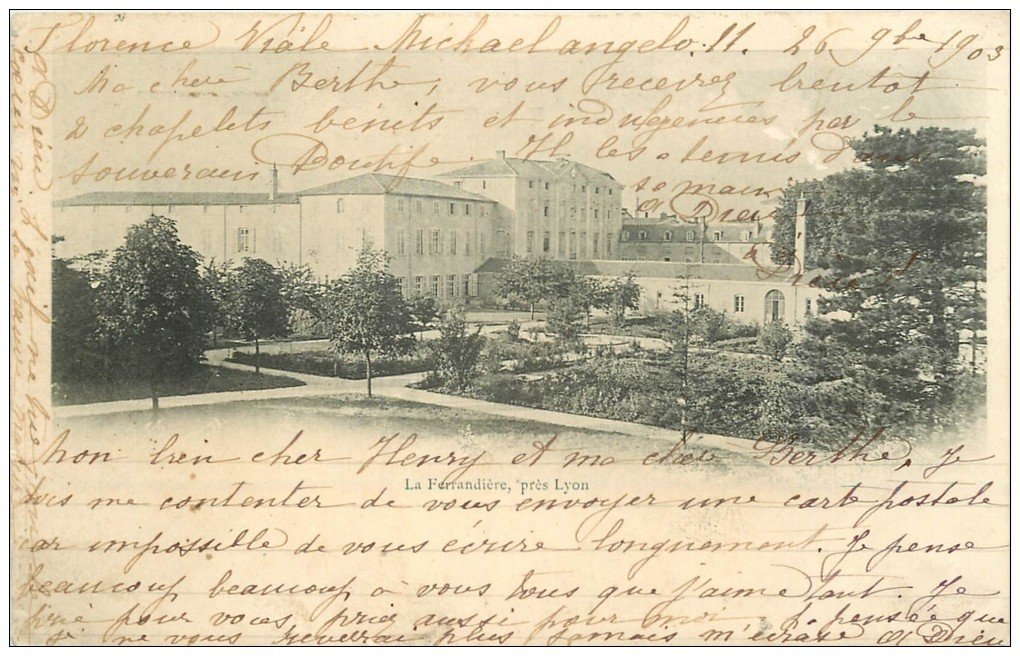 Florence Viale Michael angelo. 11. 26 9bre 1903
Ma chère Berthe, vous recevrez bientot
2 chapelets bénits et indulgenciés par le
souverain Pontife Il les a
semaine
a Dieu
La Ferrandière, près Lyon
Mon bien cher Henry et ma chère Berthe, Je
me contenter de vous envoyer une carte postale
car impossible de vous écrire longuement. Je pense
beaucoup beaucoup, à vous tous que j'aime tant. Je
prie pour vous, priez aussi pour moi pensée que
je ne vous reverrai plus jamais m'écrase a Dieu
a Dieu